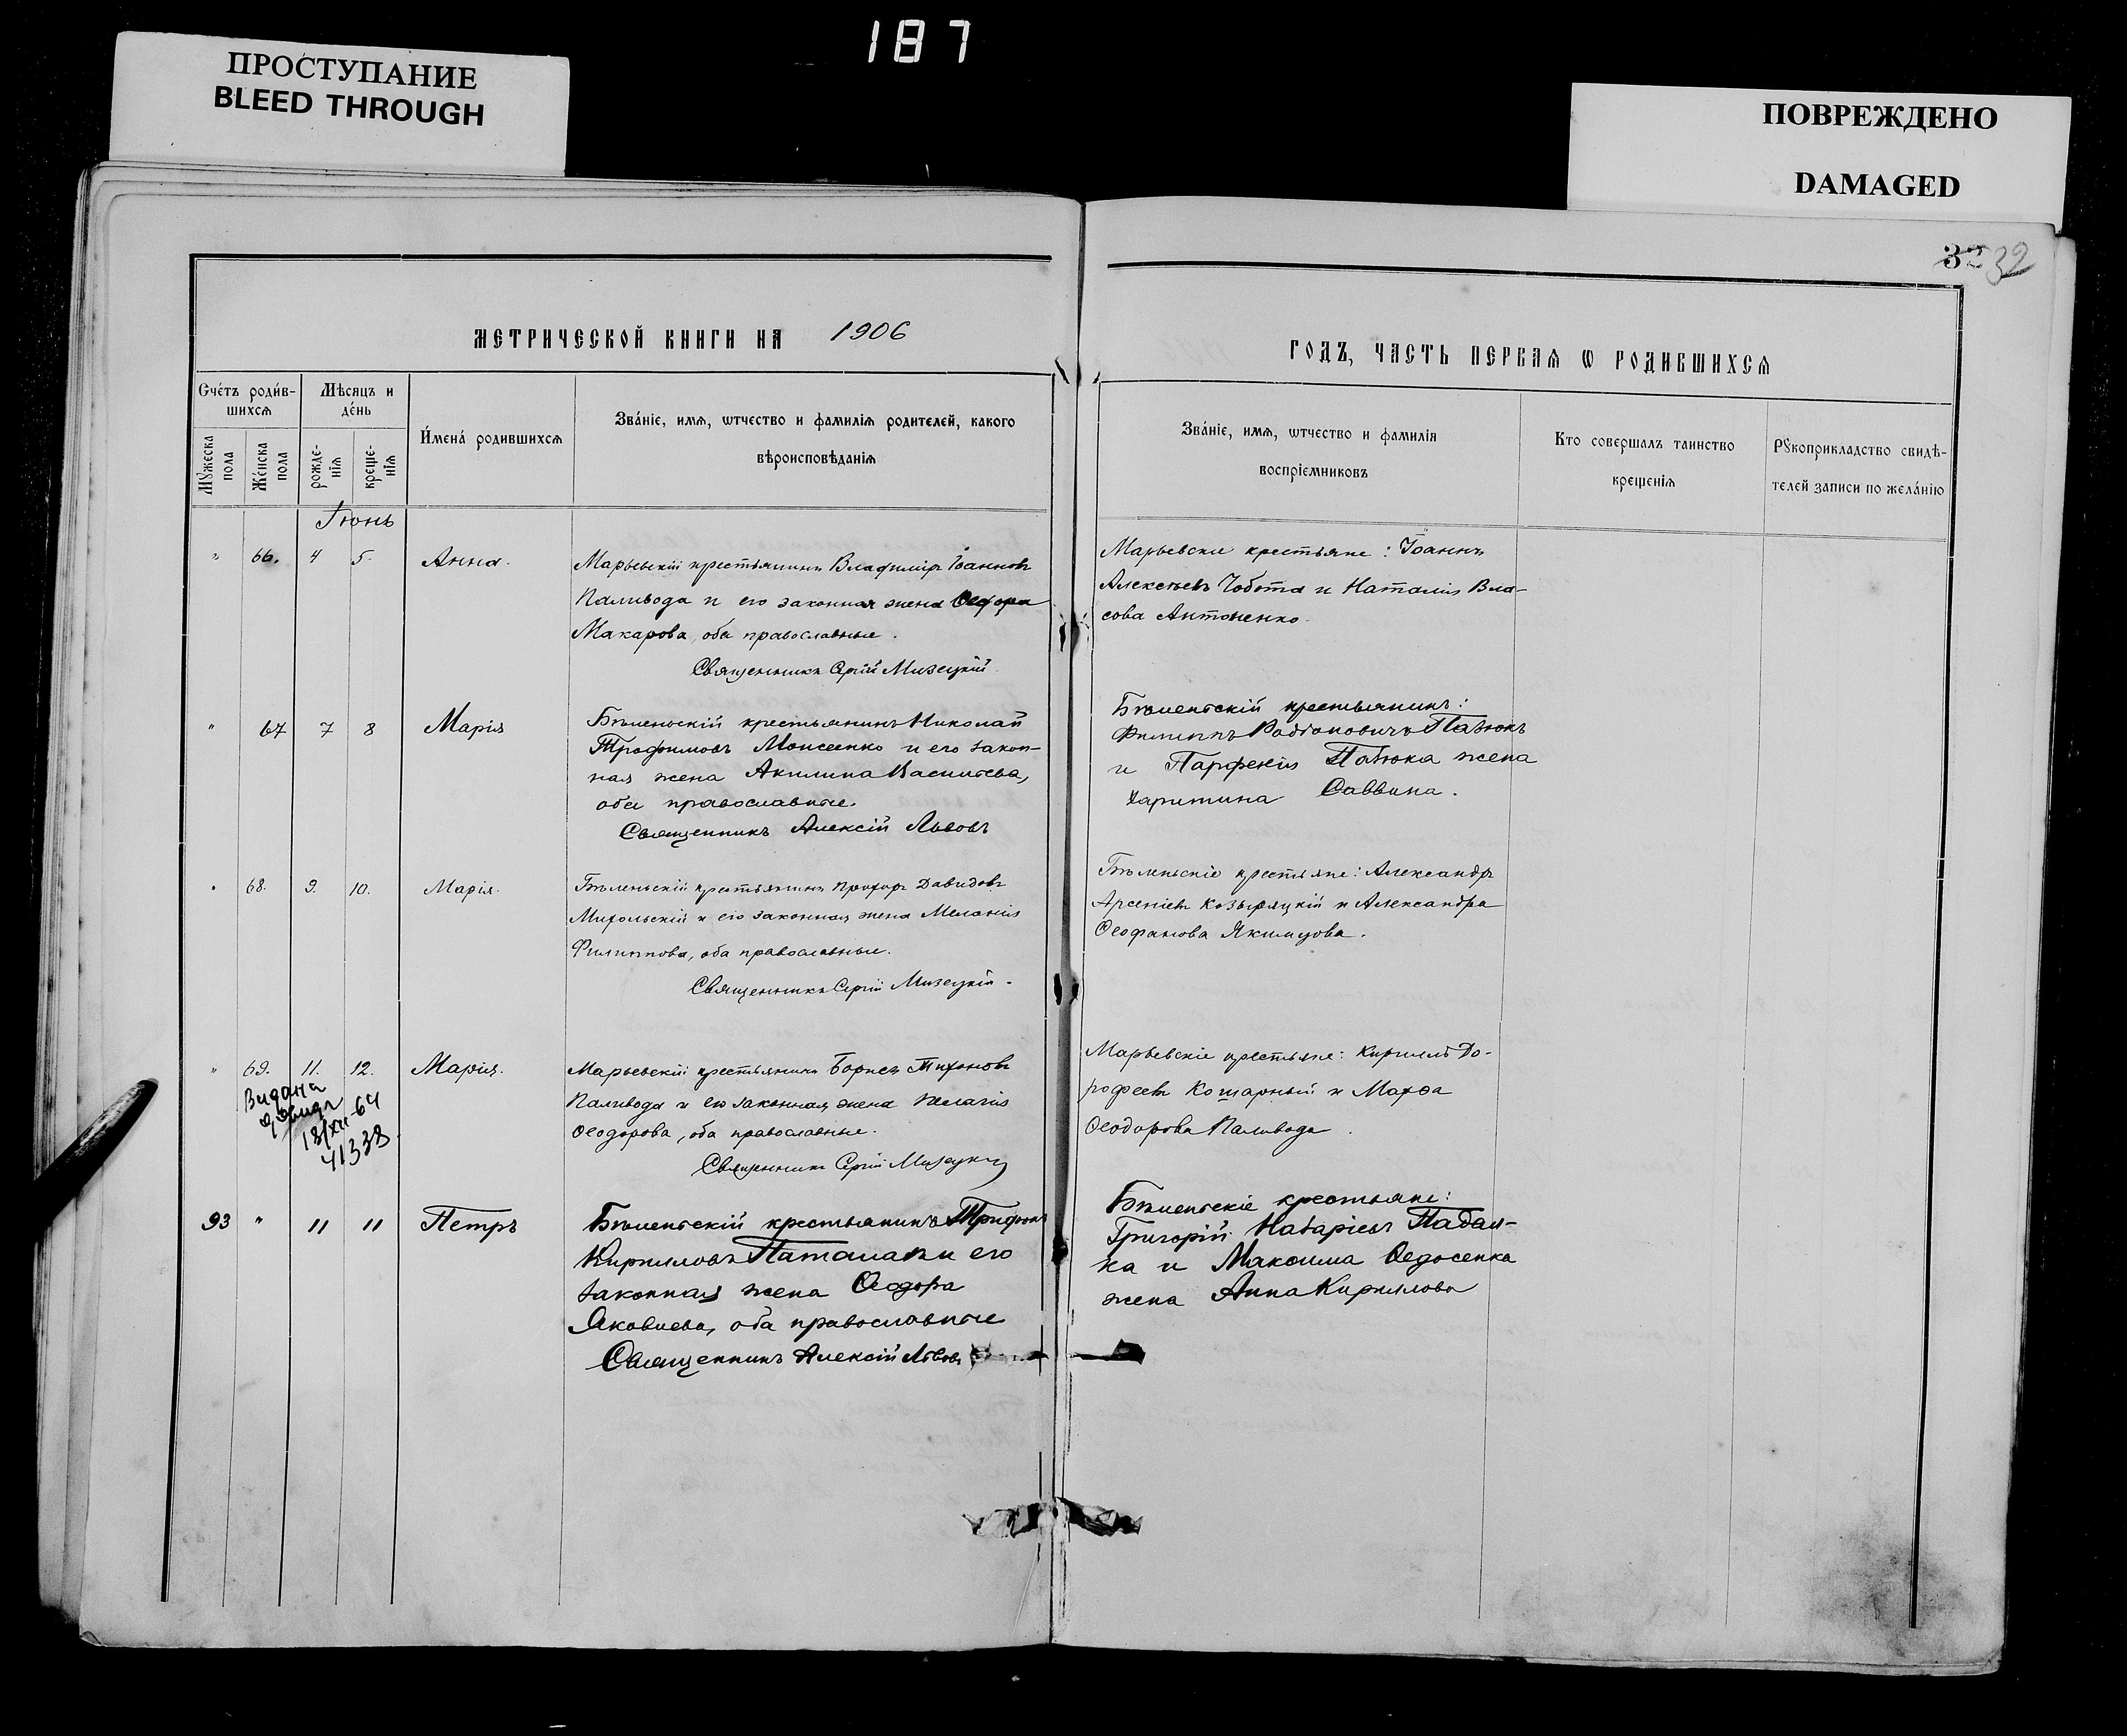 187
ПРОСТУПАНИЕ
BLEED THROUGH
ПОВРЕЖДЕНО
DAMAGED
32 32
МЕТРИЧЕСКОЙ КНИГИ НА 1906
ГОДЪ, ЧАСТЬ ПЕРВАЯ Ѡ РОДИВШИХСЯ
Счéтъ роди́в-
шихсѧ
Мѣсяцъ и
дéнь
Мꙋжеска
пола
Жéнска
пола
рожде-
нїѧ
креще-
нїѧ
И́менá родившихсѧ
Звáнїе, имѧ, ѡтчество и фамилїѧ родителей, какого
вѣроисповѣданїѧ
Звáнїе, имѧ, ѡтчество и фамилїѧ
воспрїемниковъ
Кто совершалъ таинство
крещенїѧ
Рꙋкоприкладство свидѣ-
телей записи по желáнїю
Іюнь
" 66. 4 5. Анна.
Марьевскій крестьянинъ Владиміръ Іоанновъ
Паливода и его законная жена Ѳеодора
Макарова, оба православные.
Священникъ Сергій Мизецкій
Марьевскіе крестьяне: Іоаннъ
Алексѣевъ Чобота и Наталія Вла-
сова Антоненко.
" 67 7 8 Марія
Бѣленьскій крестьянинъ Николай
Трофимовъ Моисеенко и его закон-
ная жена Акилина Васильева,
оба православные.
Священникъ Алексій Львовъ
Бѣленьскій крестьянинъ:
Филиппъ Родіоновичъ Павюкъ
и Парфенія жена
Харитина Саввина.
" 68. 9. 10. Марія.
Бѣленьскій крестьянинъ Прохоръ Давидовъ
и его законная жена Меланія
Филиппова, оба православные.
Священникъ Сергій Мизецкій.
Бѣленьскіе крестьяне: Александръ
Арсеніевъ Козыряцкій и Александра
Ѳеофанова Якимцова.
" 69. 11. 12. Марія.
Марьевскій крестьянинъ Борисъ Тихоновъ
Паливода и его законная жена Пелагія
Ѳеодорова, оба православные.
Священникъ Сергій Мизецкій
Марьевскіе крестьяне: Кириллъ До-
рофеевъ Кошарный и Марѳа
Ѳеодорова Паливода.
Видана
13/XII-64
41338
93 " 11 11 Петръ
Бѣленьскій крестьянинъ Трифонъ
Кирилловъ и его
законная жена Ѳеодора
Яковлева, оба православные
Священникъ Алексій Львовъ
Бѣленьскіе крестьяне:
Григорій Назаріевъ Падал-
ка и Максима Ѳедосенка
жена Анна Кириллова